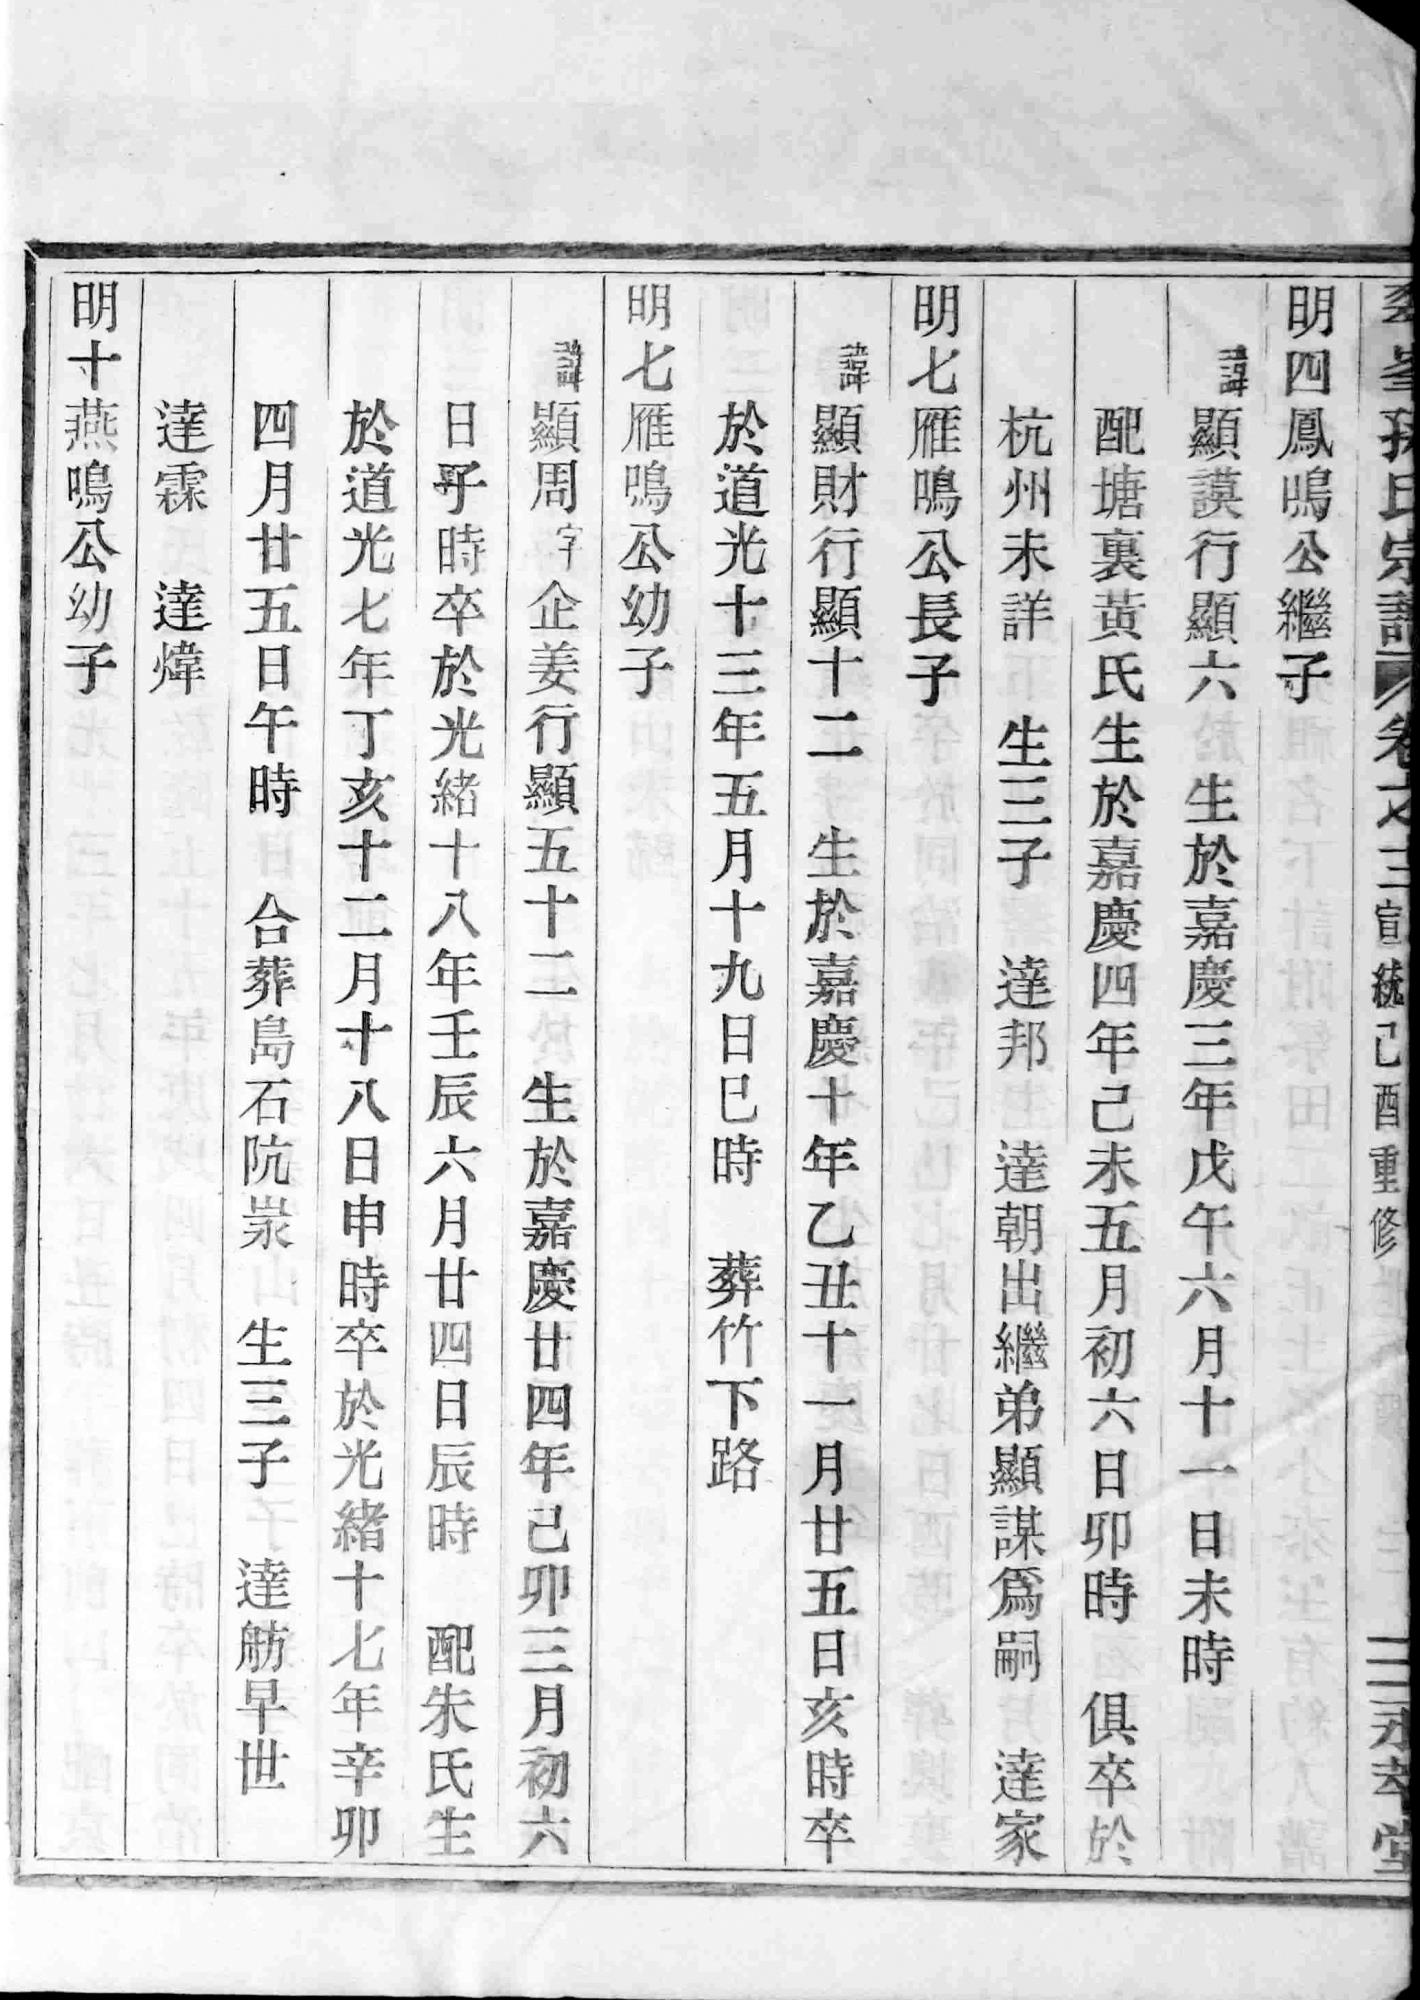 孫氏宗譜 卷之三 宣統己酉重修 二 永萃堂
明四鳳鳴公繼子
諱顯謨行顯六 生於嘉慶三年戊午六月十一日未時
配塘裏黃氏生於嘉慶四年己未五月初六日卯時 俱卒於
杭州未詳 生三子 達邦 達朝出繼弟顯謀爲嗣 達家
明七雁鳴公長子
諱顯財行顯十二 生於嘉慶十年乙丑十一月廿五日亥時卒
於道光十三年五月十九日巳時 葬竹下路
明七雁鳴公幼子
諱顯周字企姜行顯五十二 生於嘉慶廿四年己卯三月初六
日子時卒於光緒十八年壬辰六月廿四日辰時 配朱氏生
於道光七年丁亥十二月十八日申時卒於光緒十七年辛卯
四月廿五日午時 合葬島石阬裳山 生三子 達舫早世
達霖 達煒
明十燕鳴公幼子